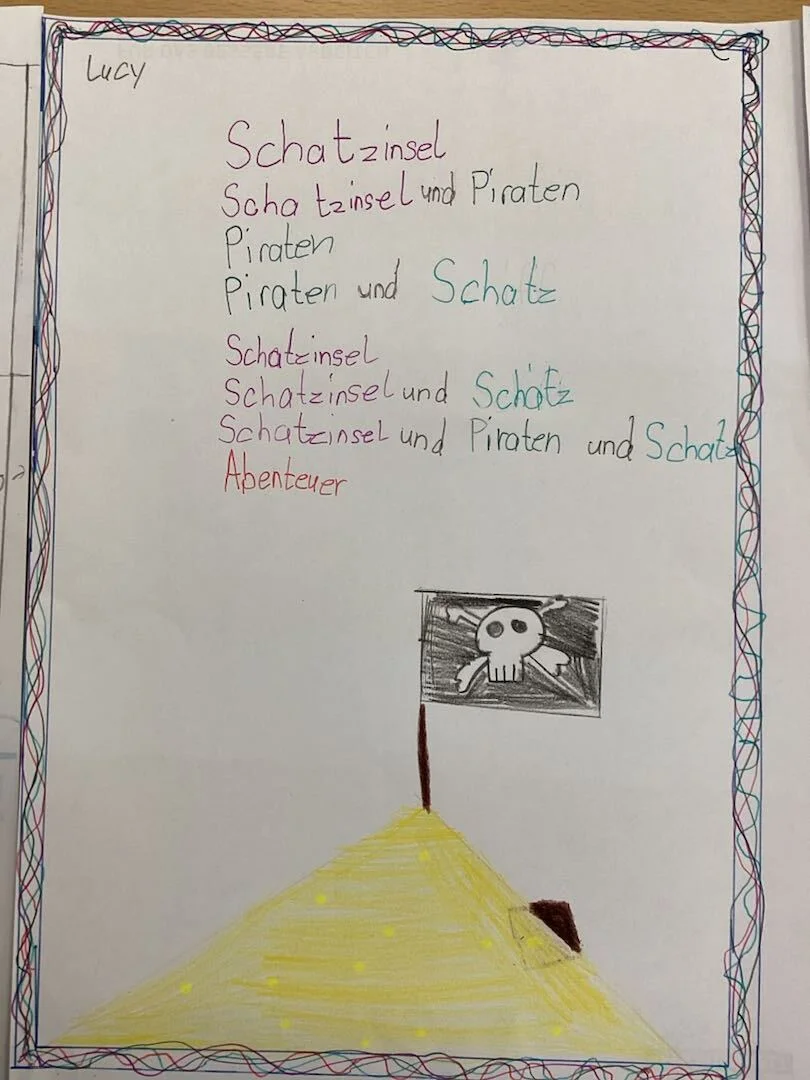 Lucy
Schatzinsel
Schatzinsel und Piraten
Piraten
Piraten und Schatz
Schatzinsel
Schatzinsel und Schatz
Schatzinsel und Piraten und Schatz
Abenteuer